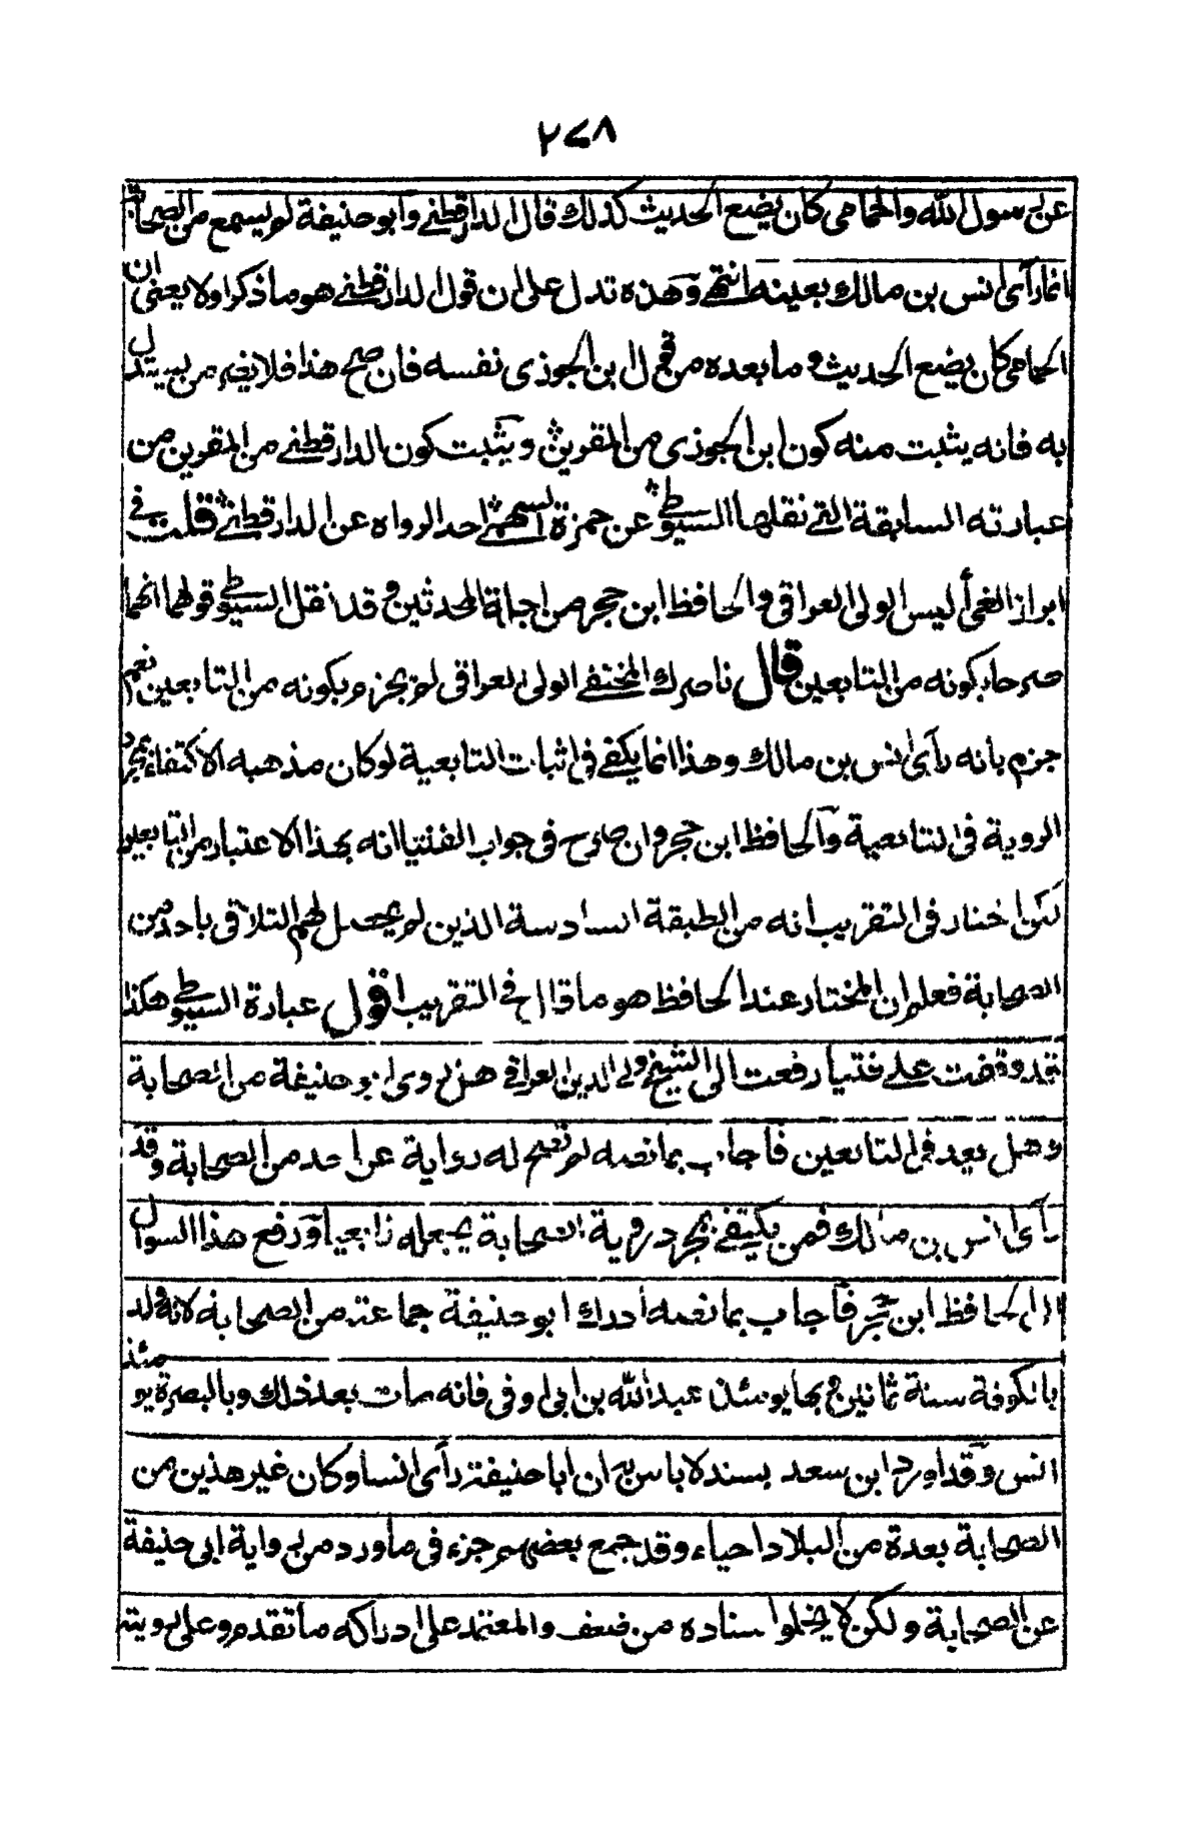 ٢٧٨
عن رسول الله والحمامى كان يضع الحديث كذلك قال الدارقطنى وابو حنيفة لم يسمع من الصحابة
انما رآى انس بن مالك بعينه انتهى وهذه تدل على ان قول الدارقطنى هو ما ذكر اولا يعنى ان
الحمامى كان يضع الحديث وما بعده من قول ابن الجوزى نفسه فان صح هذا فلا يضر من يستدل
به فانه يثبت منه كون ابن الجوزى من المقرين ويثبت كون الدارقطنى من المقرين من
عبارته السابقة التى نقلها السيوطى عن حمزة السهمى احد الرواه عن الدارقطنى قلت فى
ابراز الغى أليس الولى العراقى والحافظ ابن حجر من اجلة المحدثين وقد نقل السيوطى قولهما انهما
صرحا بكونه من التابعين قال ناصرك المختفى الولى العراقى لم يجزم بكونه من التابعين نعم
جزم بانه رآى انس بن مالك وهذا انما يكفى فى اثبات التابعية لو كان مذهبه الاكتفاء بمجرد
الروية فى التابعية والحافظ ابن حجر وان صرح فى جواب الفتيا انه بهذا الاعتبار من التابعين
لكن اختار فى التقريب انه من الطبقة السادسة الذين لم يحصل لهم التلاقى باحد من
الصحابة فعلم ان المختار عند الحافظ هو ما قال فى التقريب اقول عبارة السيوطى هكذا
قد وقفت على فتيا رفعت الى الشيخ ولى الدين العراقى هل روى ابو حنيفة من الصحابة
وهل يعد فى التابعين فأجاب بما نصه لم تصح له رواية عن احد من الصحابة وقد
رآى انس بن مالك فمن يكتفى بمجرد روية الصحابة يجعله تابعيا ورفع هذا السوال
الى الحافظ ابن حجر فأجاب بما نصه أدرك ابو حنيفة جماعة من الصحابة لانه ولد
بالكوفة سنة ثمانين وبها يومئذ عبد الله بن ابى اوفى فانه مات بعد ذلك وبالبصرة يومئذ
انس وقد اورد ابن سعد بسند لا باس به ان ابا حنيفة رأى انسا وكان غير هذين من
الصحابة بعدة من البلاد احياء وقد جمع بعضهم جزء فى ما ورد من رواية ابى حنيفة
عن الصحابة ولكن لا يخلو اسناده من ضعف والمعتمد على ادراكه ما تقدم وعلى رويته